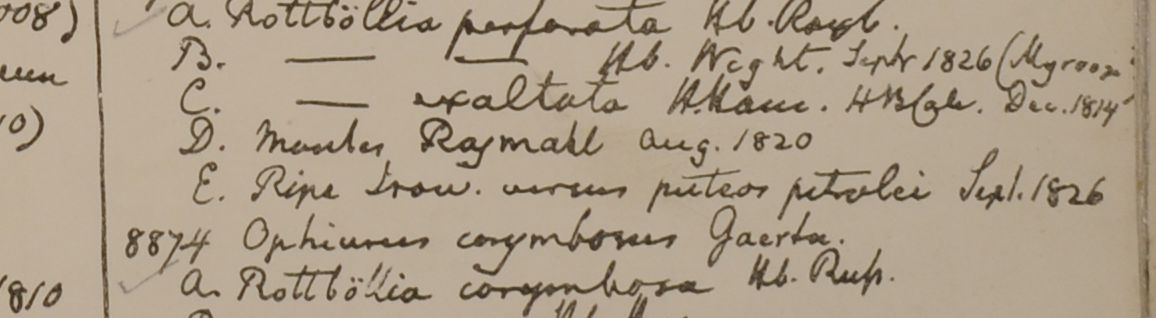 008) a. Rottböllia perforata Hb. Roxb.
B. — — Hb. Wight. Septr 1826 (Myroor
C. — exaltata H. Ham. HBCal. Dec. 1814
10) D. Montes Rajmahl Aug. 1820
E. Ripa Irow. versus puteos petrolei Sept. 1826
8874 Ophiurus corymbosus Gaertn.
1810 a. Rottböllia corymbosa Hb. Rus.